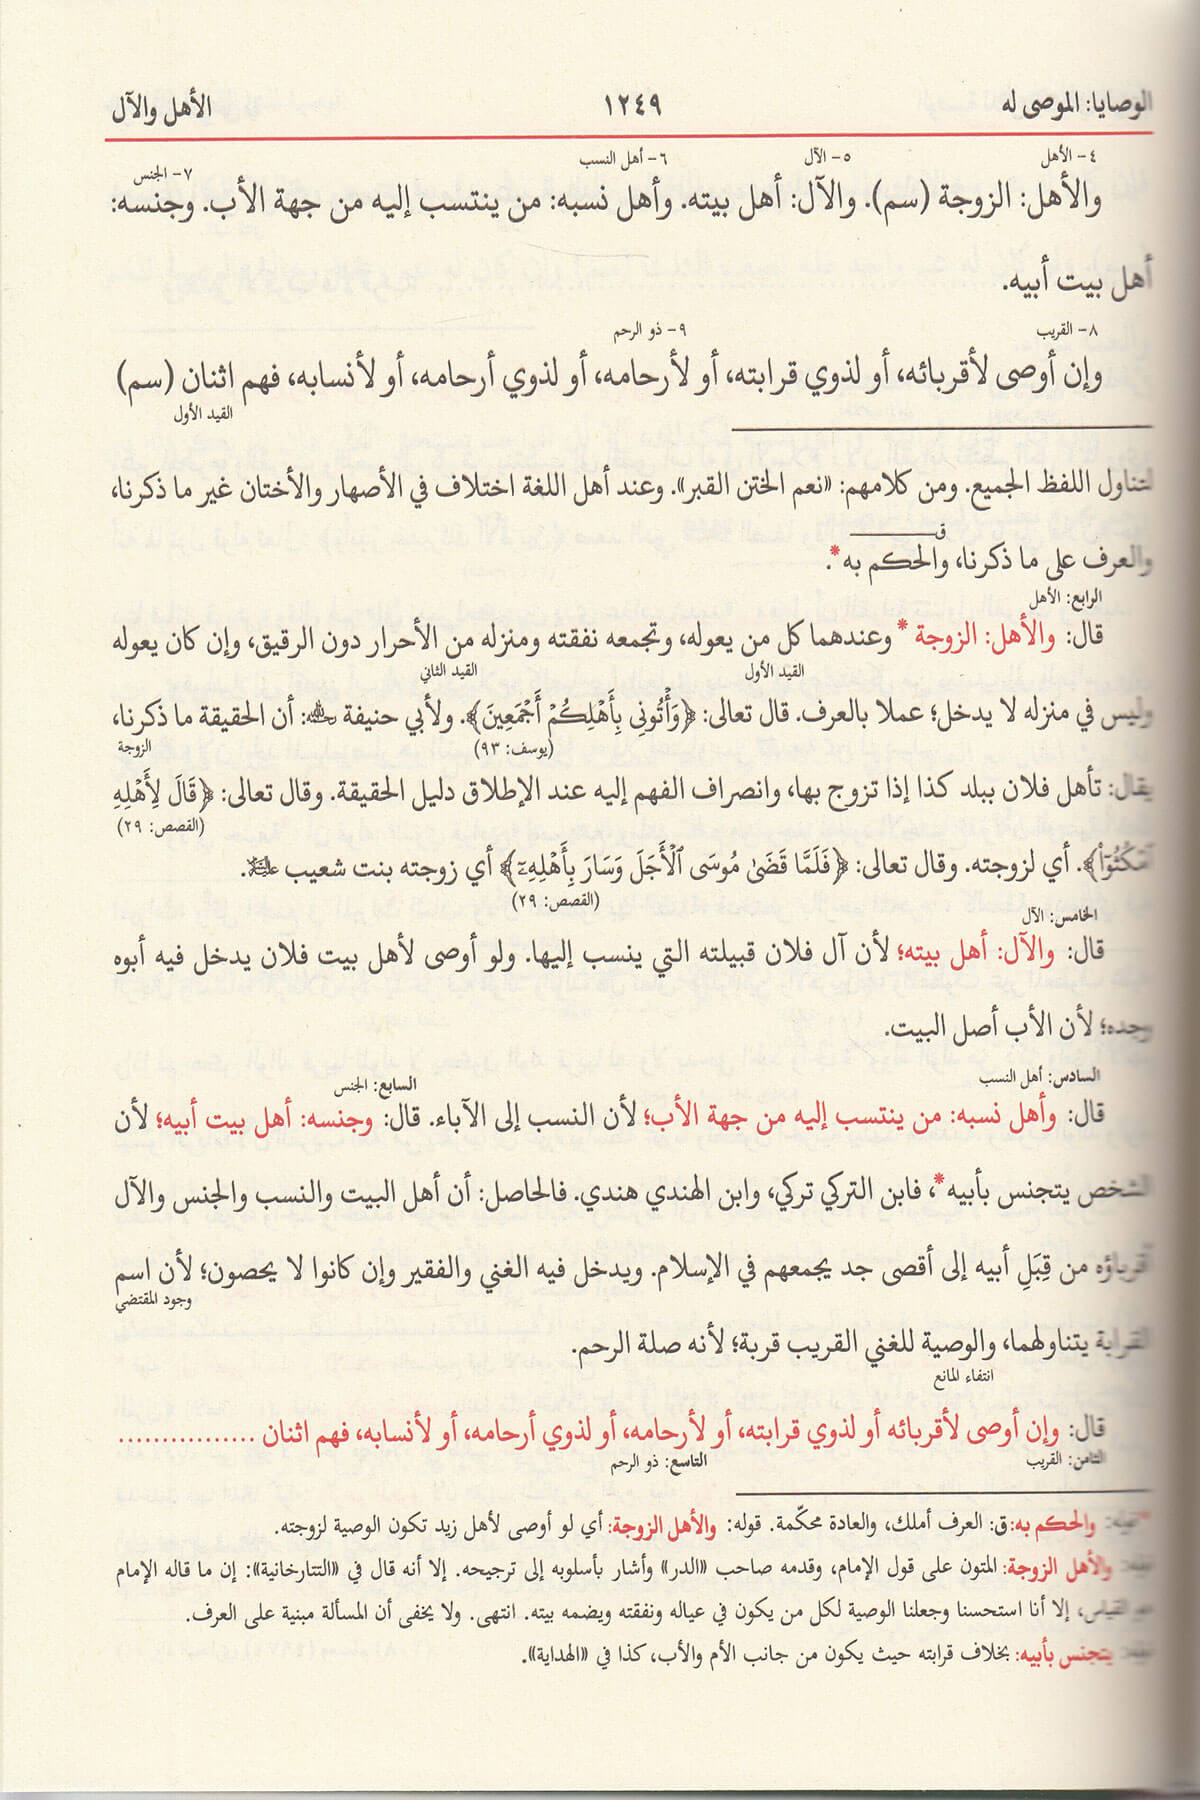 الوصايا: الموصى له ١٢٤٩ الأهل والآل
٤- الأهل ٥- الآل ٦- أهل النسب ٧- الجنس
والأهل: الزوجة (سم). والآل: أهل بيته. وأهل نسبه: من ينتسب إليه من جهة الأب. وجنسه:
أهل بيت أبيه.
٨- القريب ٩- ذو الرحم
وإن أوصى لأقربائه، أو لذوي قرابته، أو لأرحامه، أو لذوي أرحامه، أو لأنسابه، فهم اثنان (سم)
القيد الأول
لتناول اللفظ الجميع. ومن كلامهم: «نعم الختن القبر». وعند أهل اللغة اختلاف في الأصهار والأختان غير ما ذكرنا،
ق
والعرف على ما ذكرنا، والحكم به*.
الرابع: الأهل
قال: والأهل: الزوجة * وعندهما كل من يعوله، وتجمعه نفقته ومنزله من الأحرار دون الرقيق، وإن كان يعوله
القيد الأول القيد الثاني
وليس في منزله لا يدخل؛ عملا بالعرف. قال تعالى: ﴿وَأْتُونِي بِأَهْلِكُمْ أَجْمَعِينَ﴾. ولأبي حنيفة رحمه الله: أن الحقيقة ما ذكرنا،
(يوسف: ٩٣) الزوجة
يقال: تأهل فلان ببلد كذا إذا تزوج بها، وانصراف الفهم إليه عند الإطلاق دليل الحقيقة. وقال تعالى: ﴿قَالَ لِأَهْلِهِ
(القصص: ٢٩)
ٱمْكُثُوٓاْ﴾. أي لزوجته. وقال تعالى: ﴿فَلَمَّا قَضَىٰ مُوسَى ٱلْأَجَلَ وَسَارَ بِأَهْلِهِۦٓ﴾ أي زوجته بنت شعيب عليه السلام.
(القصص: ٢٩)
الخامس: الآل
قال: والآل: أهل بيته؛ لأن آل فلان قبيلته التي ينسب إليها. ولو أوصى لأهل بيت فلان يدخل فيه أبوه
وجده؛ لأن الأب أصل البيت.
السادس: أهل النسب السابع: الجنس
قال: وأهل نسبه: من ينتسب إليه من جهة الأب؛ لأن النسب إلى الآباء. قال: وجنسه: أهل بيت أبيه؛ لأن
الشخص يتجنس بأبيه*، فابن التركي تركي، وابن الهندي هندي. فالحاصل: أن أهل البيت والنسب والجنس والآل
أقرباؤه من قِبَلِ أبيه إلى أقصى جد يجمعهم في الإسلام. ويدخل فيه الغني والفقير وإن كانوا لا يحصون؛ لأن اسم
وجود المقتضي
القرابة يتناولهما، والوصية للغني القريب قربة؛ لأنه صلة الرحم.
انتفاء المانع
قال: وإن أوصى لأقربائه أو لذوي قرابته، أو لأرحامه، أو لذوي أرحامه، أو لأنسابه، فهم اثنان ................
الثامن: القريب التاسع: ذو الرحم
والحكم به: ق: العرف أملك، والعادة محكّمة. قوله: والأهل الزوجة: أي لو أوصى لأهل زيد تكون الوصية لزوجته.
والأهل الزوجة: المتون على قول الإمام، وقدمه صاحب «الدر» وأشار بأسلوبه إلى ترجيحه. إلا أنه قال في «التتارخانية»: إن ما قاله الإمام
هو القياس، إلا أنا استحسنا وجعلنا الوصية لكل من يكون في عياله ونفقته ويضمه بيته. انتهى. ولا يخفى أن المسألة مبنية على العرف.
يتجنس بأبيه: بخلاف قرابته حيث يكون من جانب الأم والأب، كذا في «الهداية».